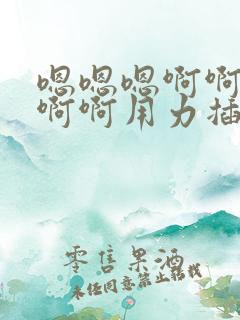 嗯嗯嗯啊啊
啊啊用力插
零售果酒
未经同意禁止转载